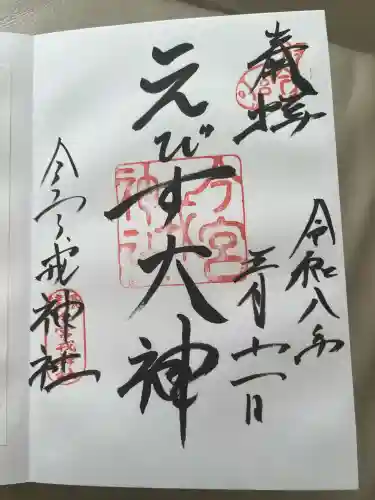 奉拝
令和八年
正月十一日
えびす大神
今宮戎神社
今宮戎神社